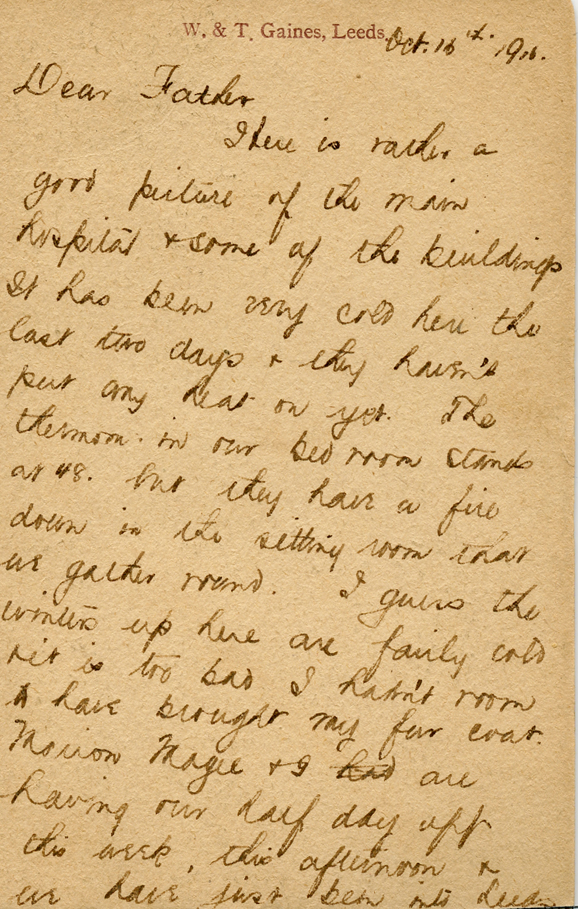 W. & T. Gaines, Leeds.
Oct. 16th. 1916.
Dear Father
Here is rather a
good picture of the main
hospital & some of the buildings
It has been very cold here the
last two days & they haven't
put any heat on yet. The
thermom. in our bed room stands
at 48. but they have a fire
down in the sitting room that
we gather round. I guess the
winters up here are fairly cold
& it is too bad I hadn't room
to have brought my fur coat.
Marion Magee & I had are
having our half day off
this week, this afternoon &
we have just been into Leeds